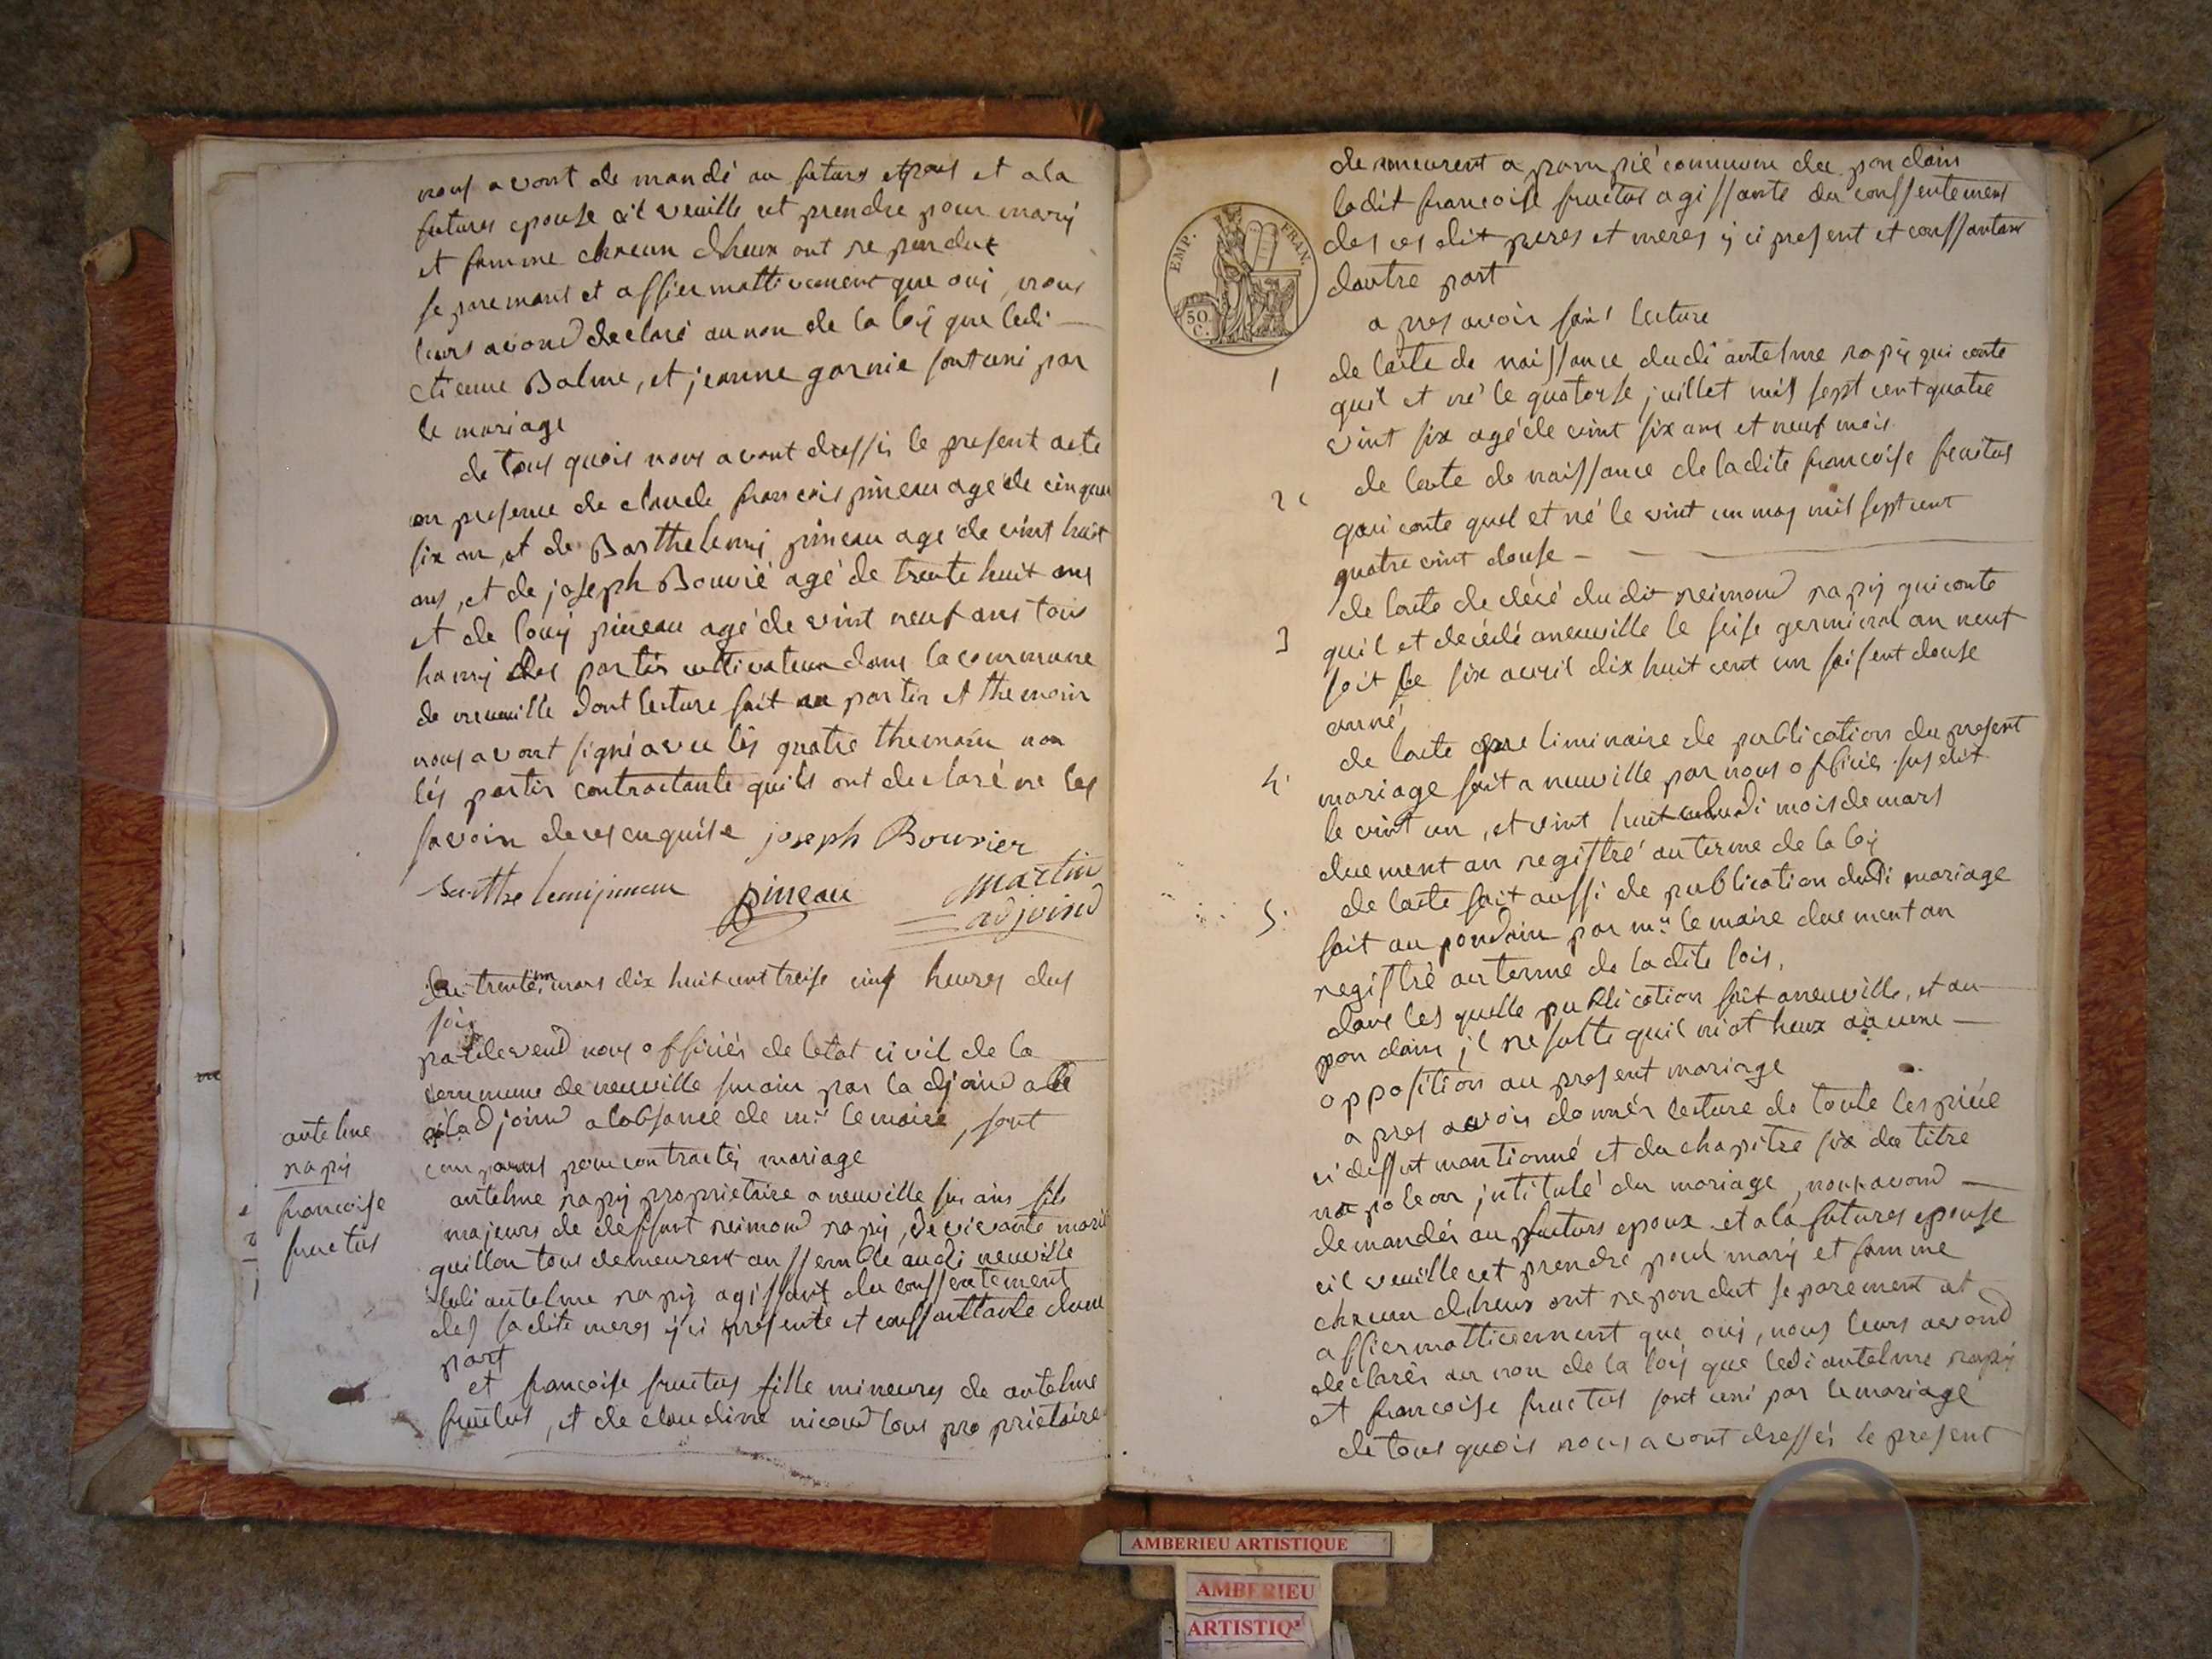 nous avont de mandé au futurs epous et a la
futures epouse s'il veuille et prendre pour mary
et famme chacun dheux ont repondut
separemant et affiermattivement que oui, nous
leurs avond declaré au non de la loy que ledi
etienne Balme, et jeanne garnie sont uni par
le mariage
de tous quois nous avont dressés le present acte
en presence de claude francois pineau agé de cinquen
six an, et de Barthelemy pineau agé de vint huit
ans, et de joseph Bouvié agé de trente huit ans
et de louy pineau agé de vint neuf ans tous
hamy des partis cultivateur dans la commune
de neuville dont lecture fait au partis et themoin
nous avont signé avec lés quatre themoin non
lés partis contractante quils ont declaré ne les
savoir de ces enquise joseph Bouvier
Barthelemi pineau pineau martin
adjoind
du trente un mars dix huit cent treise cinq heures dus
soir
pardevend nous officiés de letat civil de la
commune de neuville sur ain par la djoind
a la djoind a labsance de mr. le maire, sont
comparus pour contractés mariage
antelme
rapy
francoise
fructus
antelme rapy proprietaire a neuville sur ain fils
majeurs de deffunt reimond rapy, de vivante marie
guillon tous demeurent anssemble audi neuville
ledi antelme rapy agissant du conssentement
des sadite meres y ci presente et conssanttante dune
part
et francoise fructus fille mineures de antelme
fructus, et de claudine nicoud tous proprietaire
EMP. FRAN.
50
C.
demeurent a pampié commune du pondain
ladit francoise fructus agissante du conssentement
des ces dit peres et meres y ci present et conssantant
dautre part
apres avoir fait lecture
1 de lacte de naissance dudi antelme rapy qui conte
quil et né le quatorse juillet mil sept cent quatre
vint six agé de vint six ans et neuf mois
2 de lacte de naissance de ladite francoise fructus
qui conte quel et né le vint un may mil sept cent
quatre vint douse
3 de lacte de décé du dit reimond rapy qui conte
quil et decédé aneuville le seise germinal an neuf
soit le six avril dix huit cent un faisent douse
anné
4 de lacte preliminaire de publication du present
mariage fait a neuville par nous officiés susdit
le vint un, et vint huit dudi mois de mars
duement an registré au terme de la loy
5. de lacte fait aussi de publication dudi mariage
fait au pondain par mr. le maire duement an
registré au terme de ladite lois,
dans les quelle publication fait aneuville, et au
pon dain, il resulte quil niat heux aucune
opposition au present mariage
apres avoir donnés lecture de toute les piéce
ci dessut mantionné et du chapitre six du titre
napoleon intitulé du mariage, nous avond
demandés au futurs epoux et a la futures epouse
cil veuille et prendre pour mary et famme
chacun dheux ont repondut separement et
affiermattivement que oui, nous leurs avond
declarés au non de la loy que ledi antelme rapy
et francoise fructus sont uni par le mariage
de tous quois nous avont dressés le present
AMBERIEU ARTISTIQUE
AMBERIEU
ARTISTIQ